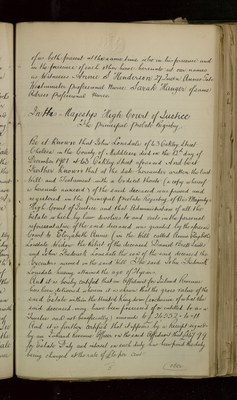 of us both present at the same time who in his presence and
in the presence of each other have hereunto set our names
as Witnesses Annie S Henderson 27 Queen Annes Gate
Westminster Professional Nurse Sarah Hunger of same
Address Professional Nurse
In His Majestys High Court of Justice
The Principal Probate Registry
Be it Known that John Lonsdale of 43 Oakley Street
Chelsea in the County of Middlesex died on the day of
December 1901 at 43 Oakley Street aforesaid And be it
Further Known that at the date hereunder written the last
Will and Testament with a Codicil thereto (a copy whereof
is hereunto annexed) of the said deceased was proved and
registered in the Principal Probate Registry of His Majestys
High Court of Justice and that Administration of all the
estate which by law devolves to and vests in the personal
representative of the said deceased was granted by the aforesaid
Court to Elizabeth Anne (in the Will called Annie Elizabeth)
Lonsdale Widow the Relict of the deceased
and John Lonsdale the son of the said deceased the
Executors named in the said Will the said John
Lonsdale having attained the age of years
And it is hereby certified that an Affidavit for Inland Revenue
has been delivered wherein it is shewn that the gross value of the
said Estate within the United Kingdom (exclusive of what the
said deceased may have been possessed of or entitled to as a
Trustee and not beneficially) amounts to
And it is further certified that it appears by a Receipt signed
by an Inland Revenue Officer on the said Affidavit that
for Estate Duty and interest on such duty has been paid the duty
being charged at the rate of per cent